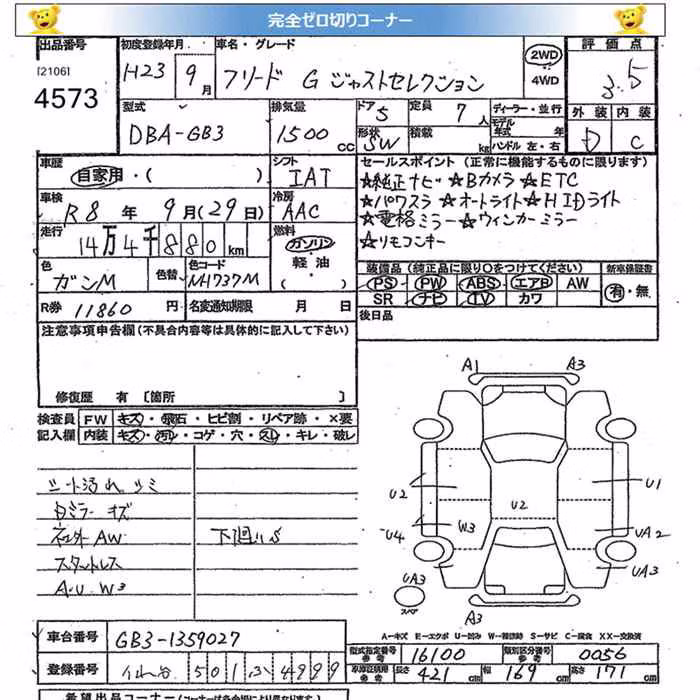 完全ゼロ切りコーナー
出品番号 初度登録年月 車名・グレード 2WD 評価点
[2106] H23 9月 フリード G ジャストセレクション 4WD 3.5
4573 型式 排気量 ドア 5 定員 7人 ディーラー・並行 外装 内装
DBA-GB3 1500cc 形状 SW 積載 kg モデル年式 年 D C
ハンドル 左・右
車歴 シフト セールスポイント (正常に機能するものに限ります)
自家用・( ) IAT ☆純正ナビ ☆Bカメラ ☆ETC
車検 冷房 ☆パワスラ ☆オートライト ☆HIDライト
R8年 9月(29日) AAC ☆電格ミラー ☆ウィンカーミラー
走行 燃料 ☆リモコンキー
14万4千880km ガソリン
軽・油
( )
色 色替 色コード 装備品 (純正品に限り○をつけてください) 新車保証書
ガンM NH737M PS PW ABS エアB AW 有・無
SR ナビ TV カワ
R券 11860円 名変通知期限 月 日 後日品
注意事項申告欄 (不具合内容等は具体的に記入して下さい)
修復歴 有 〔箇所 〕
検査員 FW キズ・飛石・ヒビ割・リペア跡・×要
記入欄 内装 キズ・汚レ・コゲ・穴・スレ・キレ・破レ
A1 A3
シート汚れ シミ
キズ
AW 下廻りS
スタットレス
A.U.W3
U2 U2 U1
U4 W3 UA2
UA3 UA3
スペア A3
A-キズ E-エクボ U-凹み W-補修跡 S-サビ C-腐食 XX-交換済
車台番号 GB3-1359027 型式指定番号 参考 16100 類別区分番号 参考 0056
登録番号 仙谷 501 ふ 4999 長さ 421cm 幅 169cm 高さ 171cm
希望出品コーナー